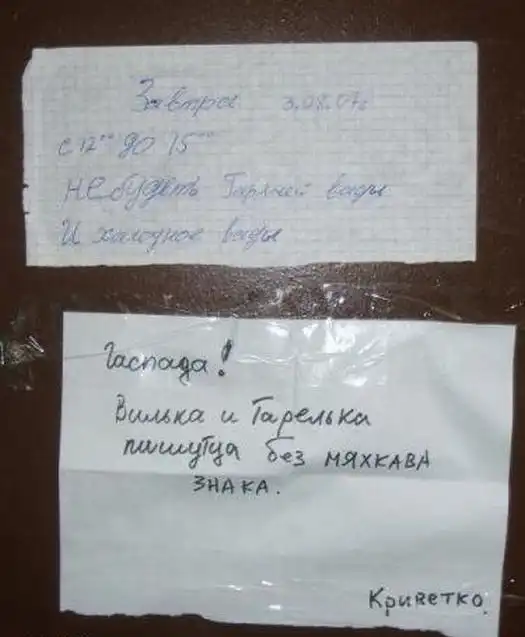 Завтра 3.08.07г
с 12⁰⁰ до 15⁰⁰
не будеть Гарячей вады
И халодное вады
Гаспада!
Вилька и Тарелька
пишутца без мяхкава
знака.
Криветко